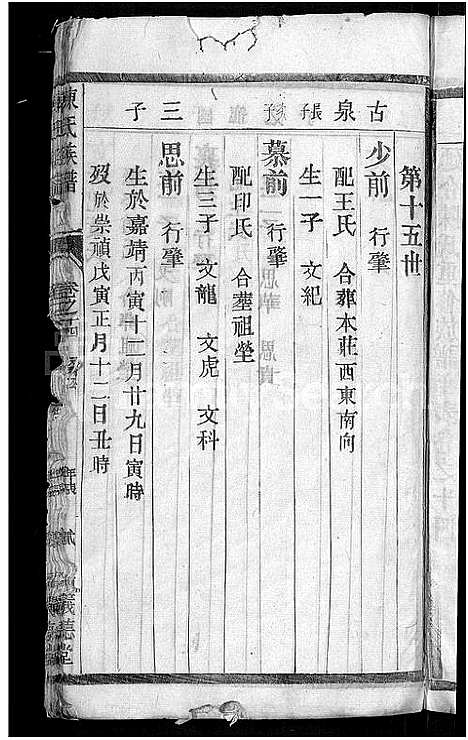 古泉長子 三子
第十五世
少前 行肇
配王氏 合葬本莊西東南向
生一子 文紀
慕前 行肇
配印氏 合塟祖塋
生三子 文龍 文虎 文科
思前 行肇
生於嘉靖丙寅十二月廿九日寅時
歿於崇禎戊寅正月十二日丑時
陳氏族譜 卷之 義德堂